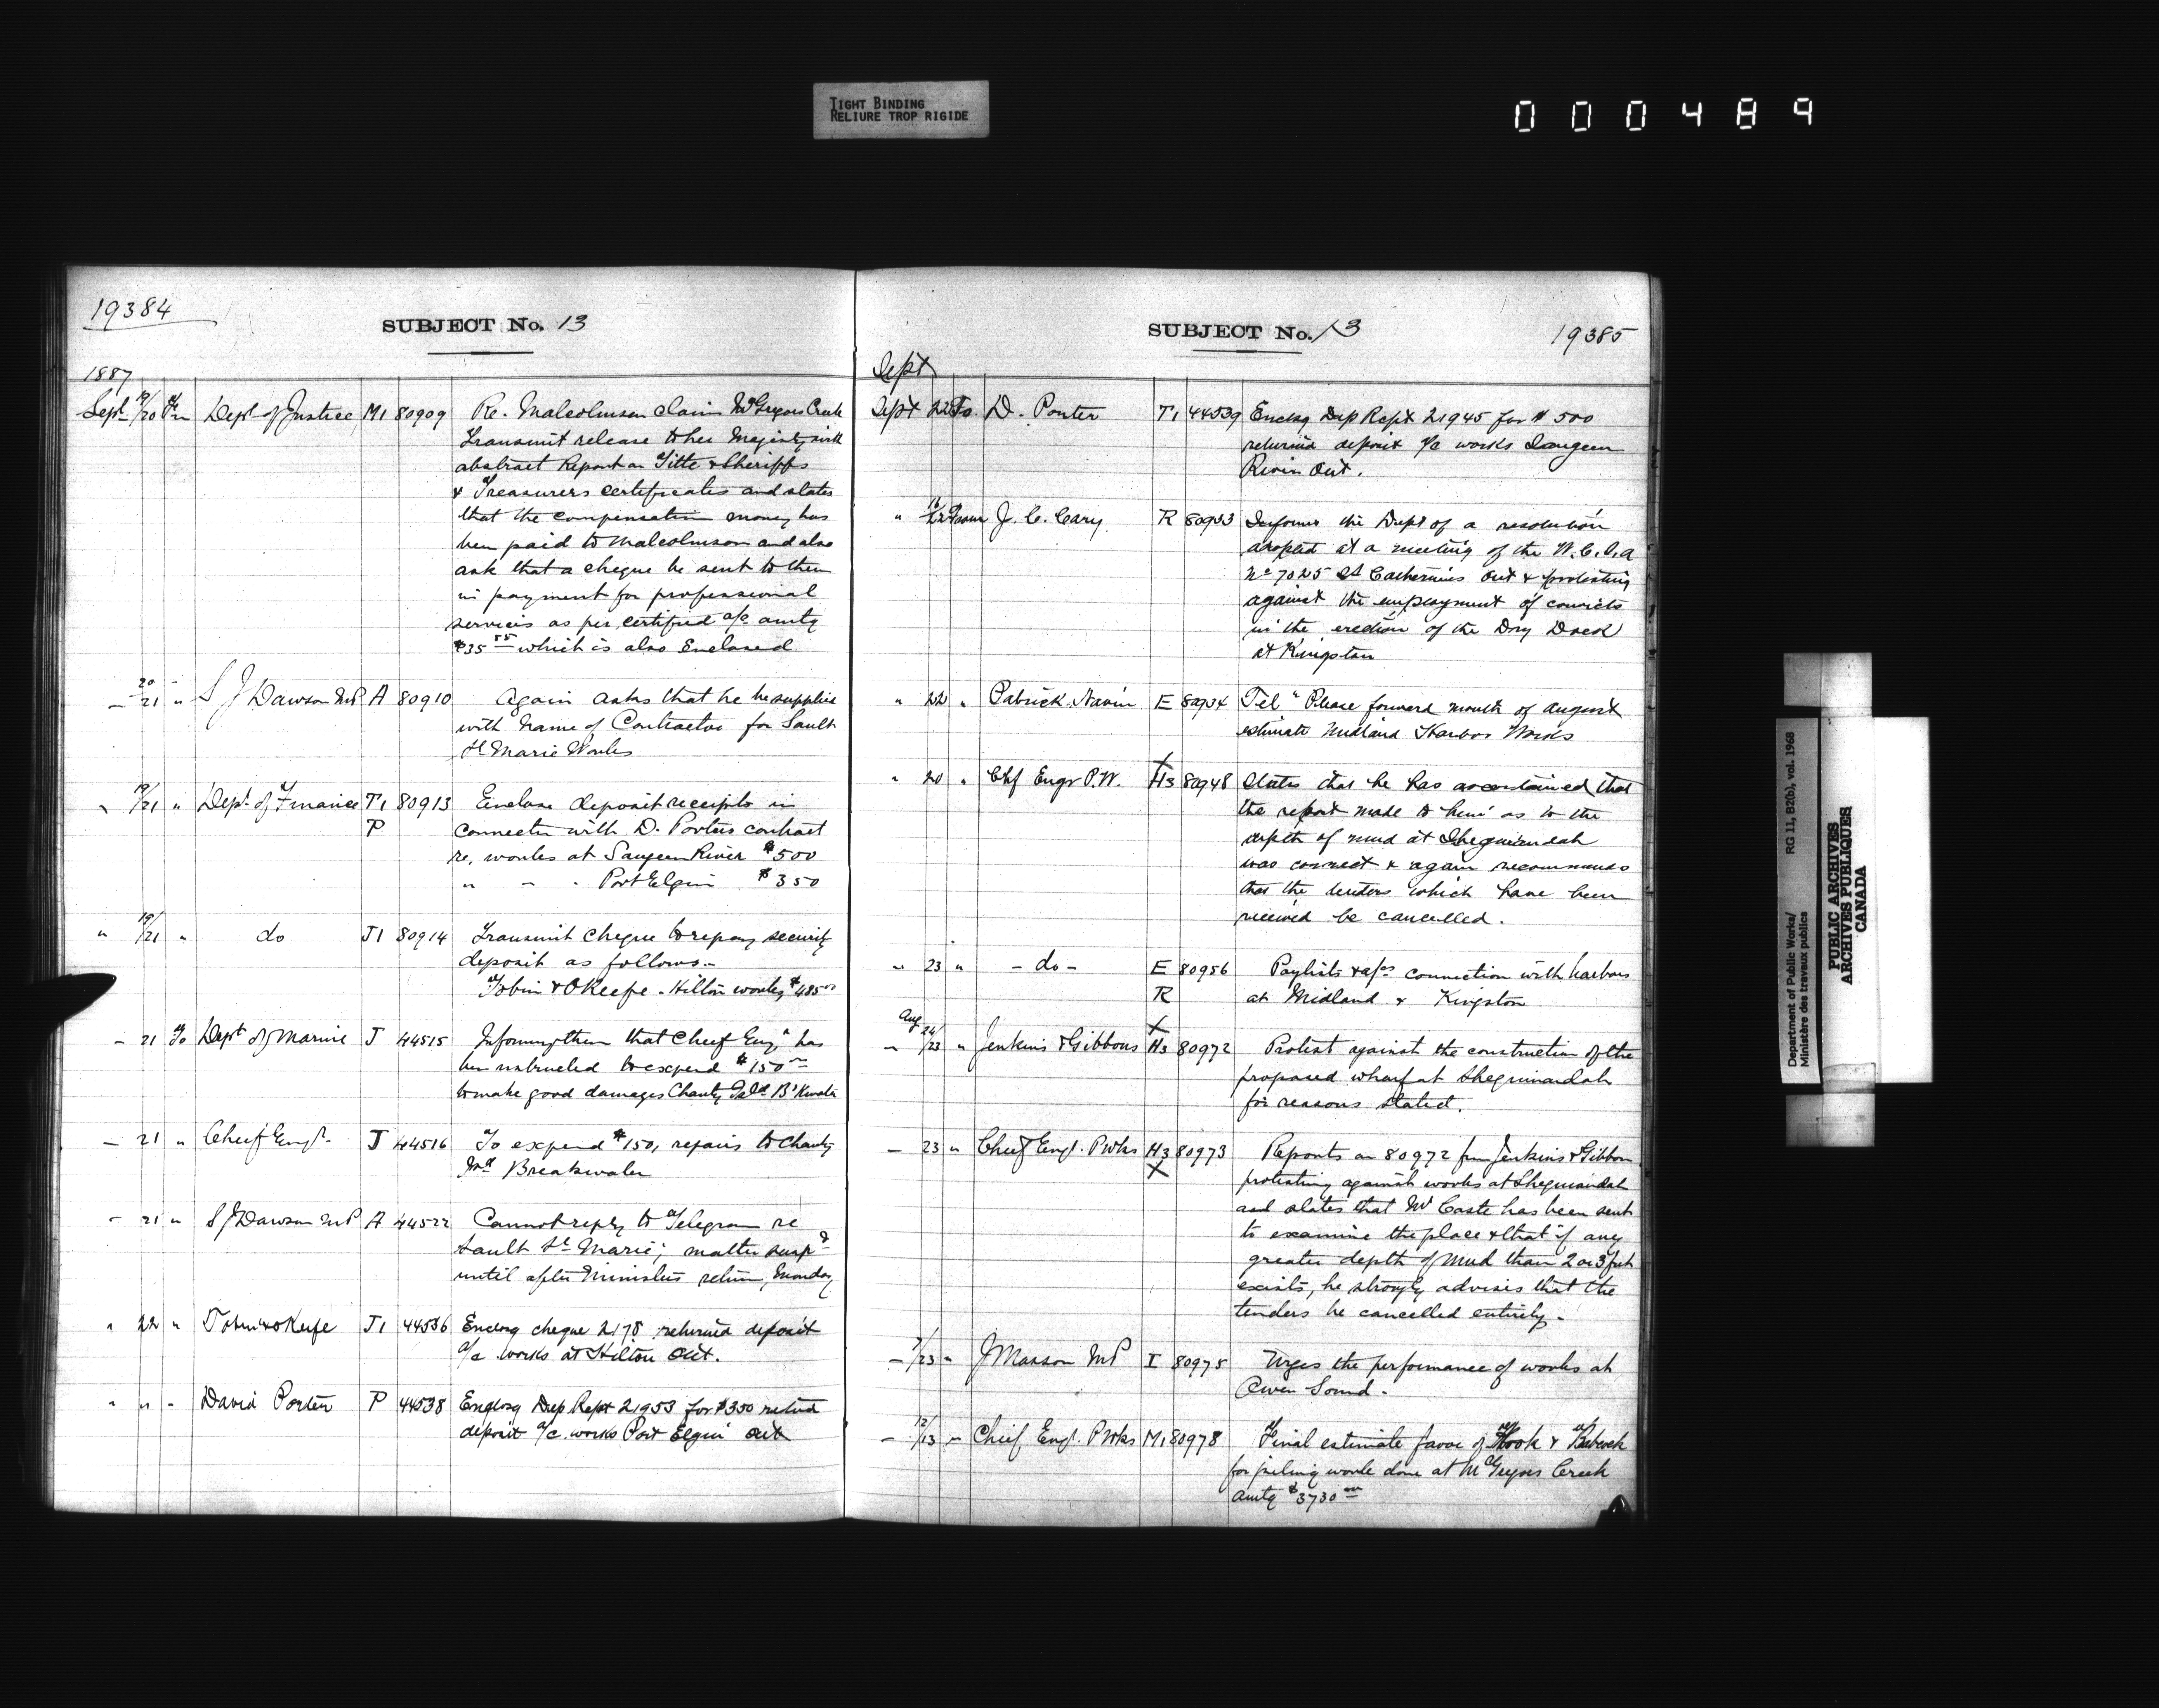 TIGHT BINDING
RELIURE TROP RIGIDE
000489
19384
SUBJECT No. 13
1887
Sept 19/20 Fm Dept of Justice M1 80909 Re. Malcolmson claim McGregors Creek
transmit release to her Majesty with
abstract Report on Title & Sheriffs
& Treasurers certificates and states
that the compensation money has
been paid to Malcolmson and also
ask that a cheque be sent to them
in payment for professional
services as per certified a/c amtg
$35 55 which is also Enclosed
— 20/21 " S J Dawson MP A 80910 Again asks that he be supplied
with name of Contractor for Sault
St Marie Works
" 19/21 " Dept. of Finance T1 80913 Enclose deposit receipts in
P connectn with D. Porters contract
re. works at Saugeen River $500
" " " Port Elgin $350
" 19/21 " do J1 80914 Transmit cheque to repay security
deposit as follows.—
Tobin & OKeefe - Hilton works $485 00
— 21 To Dept of Marine J 44515 Informing them that Chief Engr has
been instructed to expend $150
to make good damages Chantry Isld Bkwater
— 21 " Chief Engr. J 44516 To expend $150, repairs to Chantry
Isd Breakwater
— 21 " S J Dawson MP A 44522 Cannot reply to Telegram re
Sault St Marie; matter suspd
until after Ministers return, Monday
" 22 " Tobin & OKeefe J1 44536 Enclosg cheque 2178 returnd deposit
a/c works at Hilton Ont.
" " " David Porter P 44538 Enclosg Dep Rept 21953 for $350 returnd
deposit a/c works Port Elgin Ont
SUBJECT No. 13
19385
Sept
Sept 22 To D. Porter T1 44539 Enclsg Dep Rept 21945 for $500
returnd deposit a/c works Saugeen
River Ont.
" 22 From J. C. Cary R 80933 Informs the Dept of a resolution
adopted at a meeting of the
No 7025 St Catherines Ont & protesting
against the employment of convicts
in the erection of the Dry Dock
at Kingston
" 22 " Patrick Navin E 80934 Tel " Please forward month of August
estimate Midland Harbor Works
" 20 " Chf Engr P.W. X H3 80948 States that he has ascertained that
the report made to him as to the
depth of mud at Sheguiandah
was correct & again recommends
that the tenders which have been
received be cancelled.
" 23 " - do - E 80956 Paylists & a/cs connection with harbors
R at Midland & Kingston
Aug X
— 24/23 " Jenkins & Gibbons H3 80972 Protest against the construction of the
proposed wharf at Sheguiandah
for reasons stated.
— 23 " Chief Engr. PWks H3 80973 Reports on 80972 frm Jenkins & Gibbon
X protesting against works at Sheguiandah
and states that Mr Caste has been sent
to examine the place & that if any
greater depth of mud than 2 or 3 feet
exists, he strongly advises that the
tenders be cancelled entirely.
— /23 " J Masson MP I 80975 Urges the performance of works at
Owen Sound -
— 12/13 " Chief Engr. PWks M1 80978 Final estimate favor of Hook & Babcock
for piling work done at McGregors Creek
amtg $3730 00
Department of Public Works/ RG 11, B2(b), vol. 1968
Ministère des travaux publics
PUBLIC ARCHIVES
ARCHIVES PUBLIQUES
CANADA